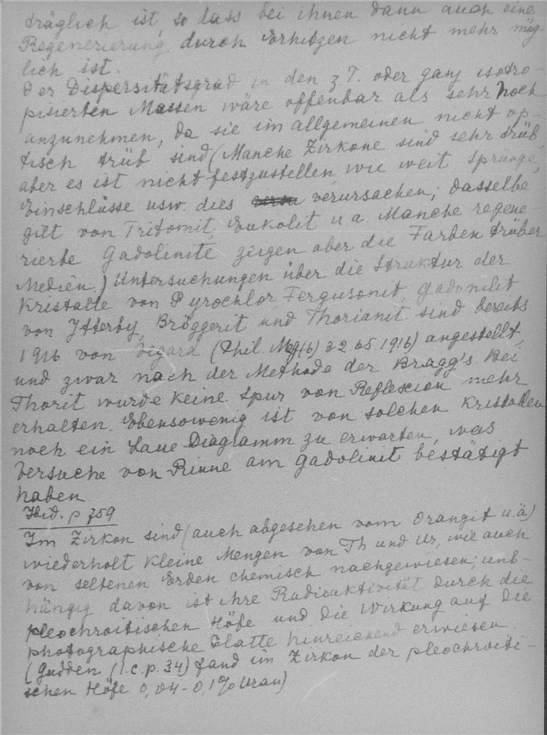 träglich ist so lass bei ihnen dann auch eine
Regenerierung durch Erhitzen nicht mehr mög
lich ist.
Der Dispersitätsgrad in den z T. oder ganz isotro-
pisierten Massen wäre offenbar als sehr hoch
anzunehmen, da sie im allgemeinen nicht op-
tisch trüb sind (Manche Zirkone sind sehr trüb
aber es ist nicht festzustellen wie weit Sprünge,
Einschlüsse usw. dies verursachen; dasselbe
gilt von Tritomit, Eukolit u a. Manche regene-
rierte Gadolinite zeigen aber die Farben trüber
Medien.) Untersuchungen über die Struktur der
Kristalle von Pyrochlor Fergusonit, Gadolinit
von Ytterby, Bröggerit und Thorianit sind bereits
1916 von Vegard (Phil. Mg (6) 32 65 1916) angestellt
und zwar nach der Methode der Bragg's. Bei
Thorit wurde keine Spur von Reflexion mehr
erhalten. Ebensowenig ist von solchen Kristallen
noch ein Laue Diagramm zu erwarten, was
Versuche von Rinne am Gadolinit bestätigt
haben
Ibid. p 759
Im Zirkon sind (auch abgesehen vom Orangit u.ä)
wiederholt kleine Mengen von Th und Ur, wie auch
von seltenen Erden chemisch nachgewiesen; unab-
hängig davon ist ihre Radioaktivität durch die
pleochroitischen Höfe und die Wirkung auf die
photographische Platte hinreichend erwiesen.
(Gudden (l.c. p. 34) fand im Zirkon der pleochroiti-
schen Höfe 0,04-0,1% Uran)